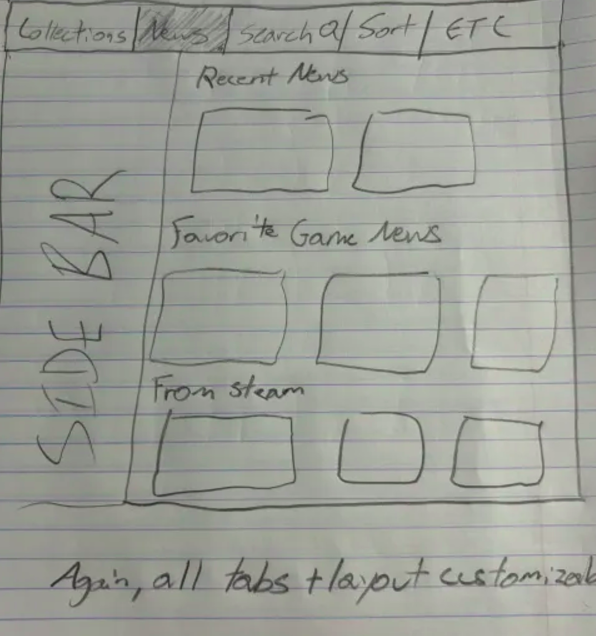 Collections | News | Search | Sort | ETC
Recent News
Favorite Game News
From Steam
SIDE BAR
Again, all tabs + layout customizab